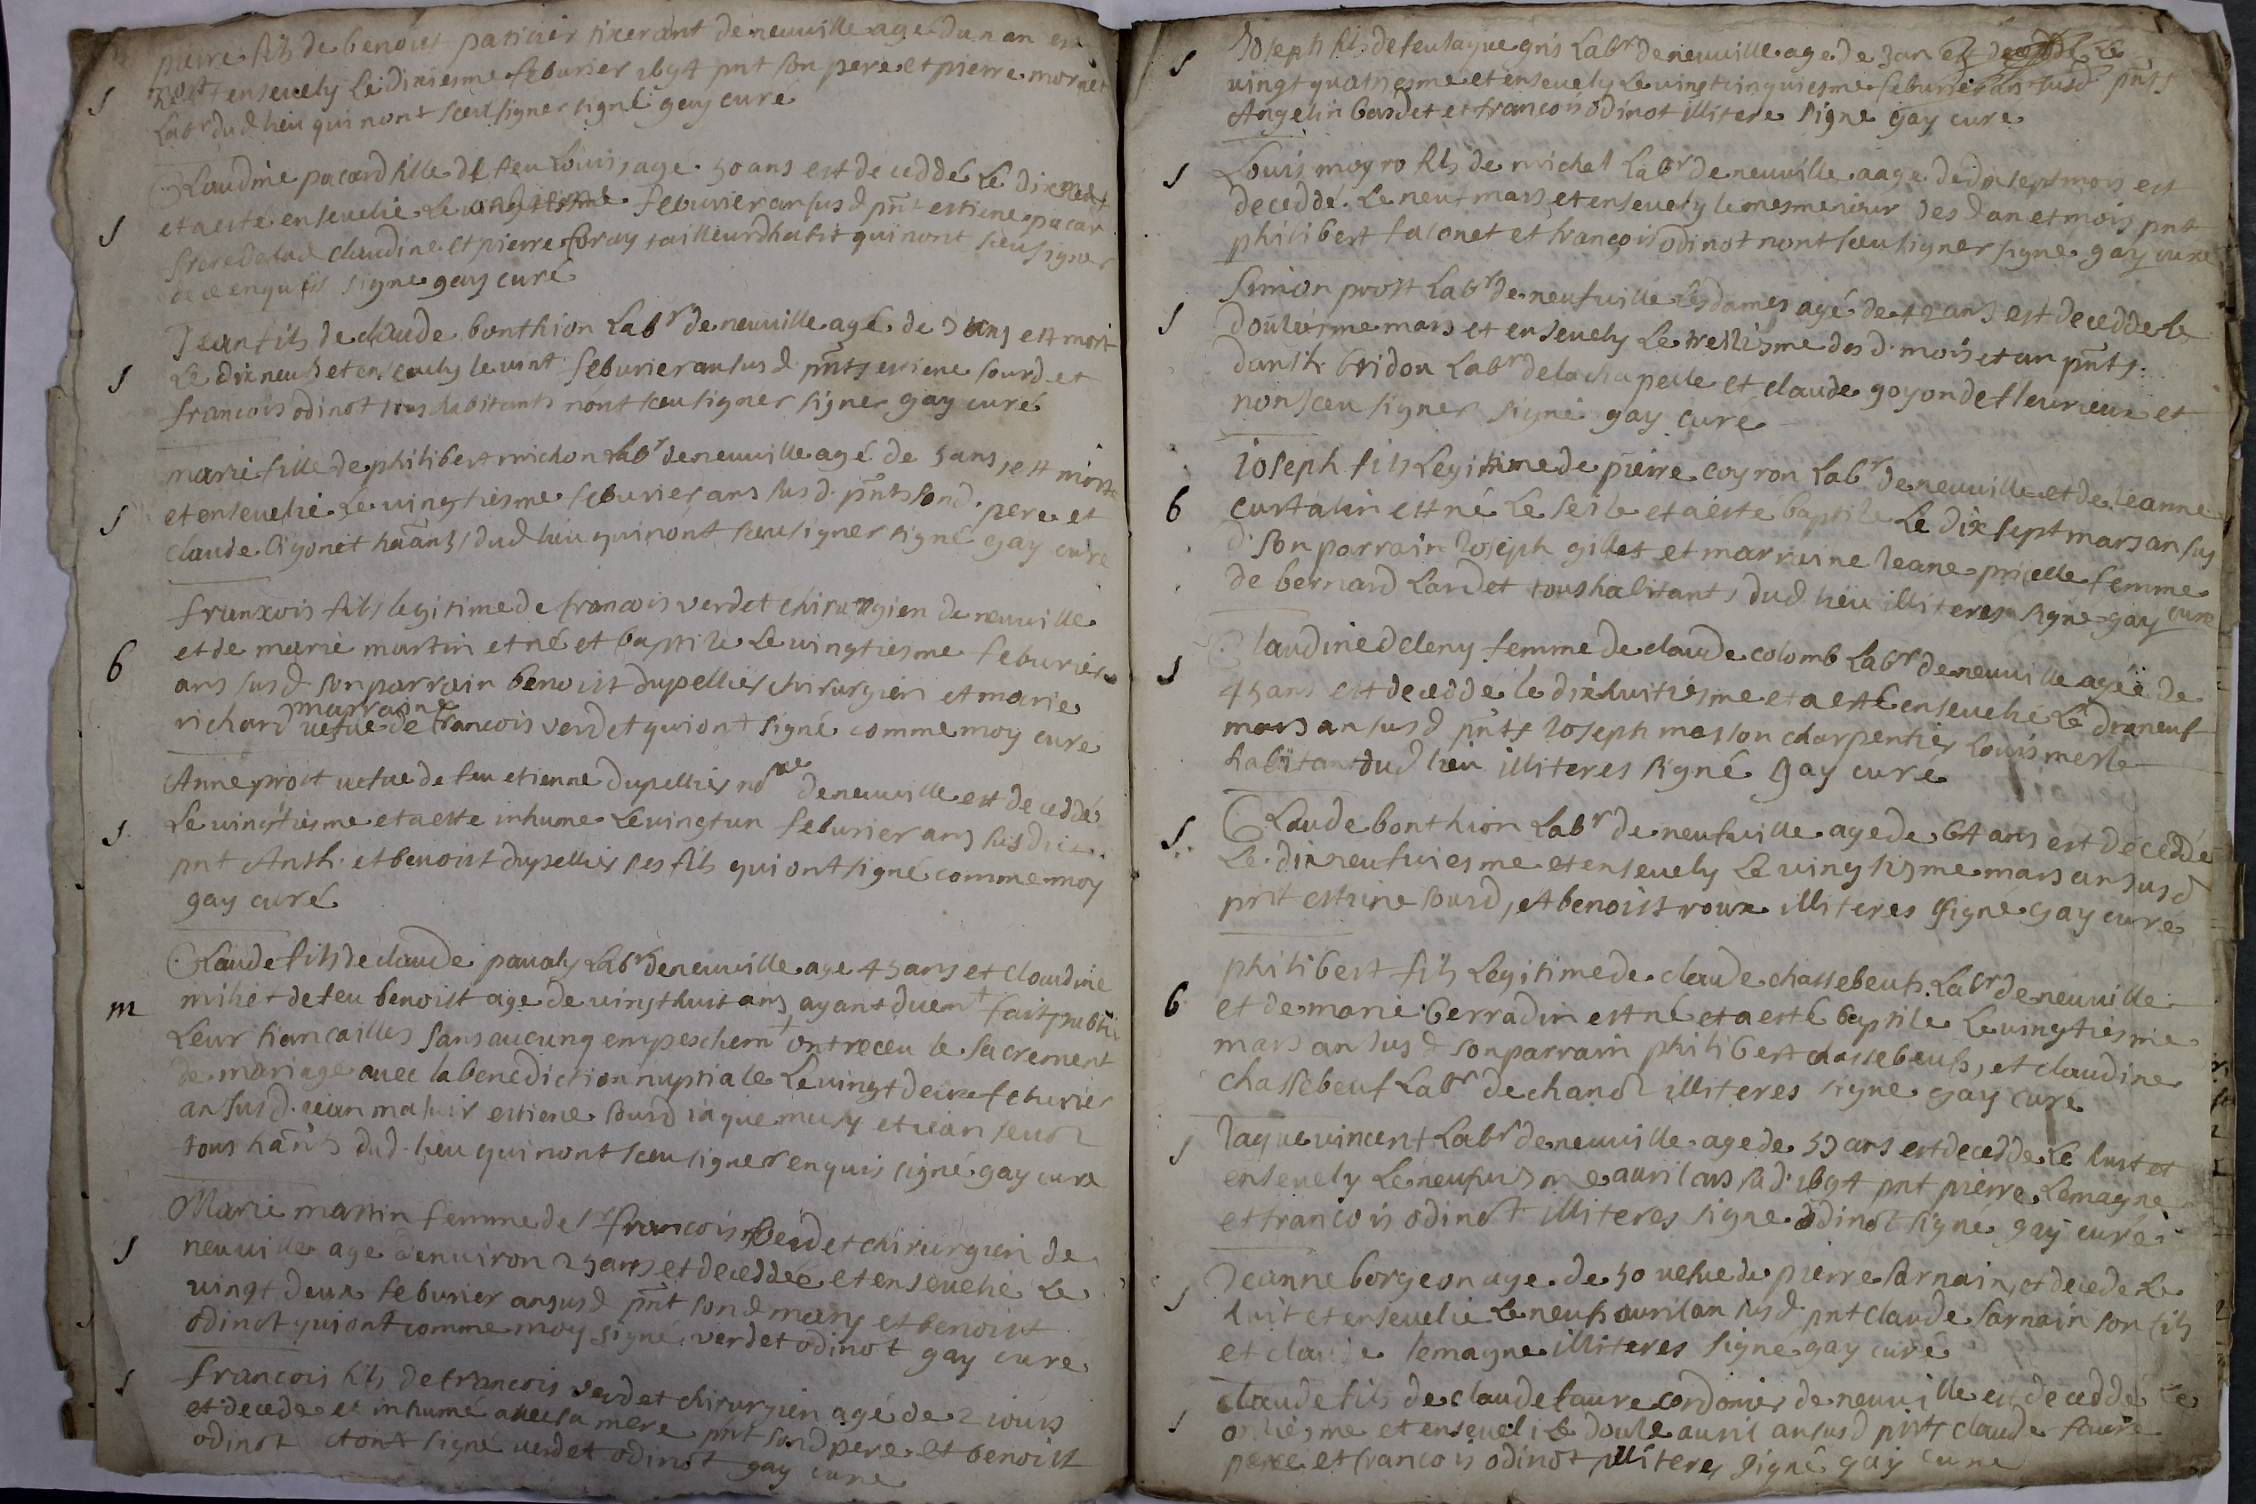 pierre fils de benoist patinier tixerant de neuville agé dun an est
mort et ensevely le dixiesme feburier 1694 pnt son pere et pierre mornet
Labr dud lieu qui nont sceu signer signé gay curé
Claudine pacard fille de feu Louis, agé 50 ans est decedde le dix
s et a esté ensevelie le feburier an susd pnt estiene pacar
frere de lad claudine et pierre foray tailleur dhabit qui nont sceu signer
de ce enquis signe gay curé
Jean fils de claude bonthion Labr de neuville agé de 3 ans est mort
s Le dix neuf et ensevely le vint feburier an susd pnts estiene sourd et
francois odinot tous habitants nont sceu signer signer gay curé
marie fille de philibert michon labr de neuville agé de 5 ans, est morte
et ensevelie Le vingtiesme feburier ans susd pnts sond pere et
s claude ligonet hãants dud lieu qui nont sceu signer signé gay cure
francois fils legitime de francois verdet chirurgien de neuville
6 et de marie martin et né et baptise Le vingtiesme feburier
ans susd son parrain benoist dupellier chirurgien et marie
marraine
richard vefue de francois verdet qui ont signé comme moy curé
Anne prost vefue de feu etienne dupellier nore de neuville est deceddé
s Le vingtiesme et a este inhume Le vingt un feburier ans susdict
pnt Anth. et benoist dupellier ses fils qui ont signé comme moy
gay curé
Claude fils de claude panaly Labr de neuville age 45 ans et claudine
m miliet de feu benoist age de vingt huit ans ayant duemt fait publier
Leur fiancailles sans aucung empeschemt ont receu le sacrement
de mariage avec la benediction nuptiale Le vingt deux feburier
an susd jean maluir estiene sourd jaque musy et jean
tous hãnts dud lieu qui nont sceu signer enquis signé gay cure
Marie martin femme de sr francois verdet chirurgien de
s neuville age denuiron 25 ans et deceddée et ensevelie Le
vingt deux feburier an susd pnt sond mary et benoist
odinot qui ont comme moy signé verdet odinot gay cure
s francois fils de francois verdet chirurgien agé de 2 jours
et decede et inhumé avec sa mere pnt sond pere et benoist
odinot et ont signé verdet odinot gay cure
s Joseph fils de feu jaque gris Labr de neuville age de 3 an est decedde Le
vingt quatriesme et ensevely Le vingt cinquiesme feburier an susd pnts
Angelin bardet et francois odinot illitere signe gay cure
s Louis moyro fils de michel Labr de neuville aage de dix sept mois est
deceddé Le neuf mars et ensevely le mesme jour desd an et mois pnt
philibert falonet et francois odinot nont sceu signer signe gay cure
Simon prost Labr de neufuille les dames agé de 42 ans est decedde le
s douziesme mars et ensevely Le treiziesme desd mois et an pnts
Danth. bridon Labr de la chapelle et claude goyon de fleurieux et
nont sceu signer signé gay curé
Joseph fils Legitime de pierre coyron Labr de neuville et de jeanne
6 curtalin est né Le seize et a este baptise Le dix sept mars an sus
d son parrain Joseph gillet et marraine Jeane prielle femme
de bernard Lardet tous habitants dud lieu illiteres signe gay cure
Claudine deleny femme de claude colomb Labr de neuville agée de
s 45 ans est deceddé le dixhuitiesme et a esté ensevelie Le dix neuf
mars an susd pnts Joseph masson charpentier Louis merle
habitant dud lieu illiteres signé gay curé
s Claude bonthion Labr de neufuille age de 64 ans est décéddé
Le dix neufuiesme et ensevely Le vingtisme mars an susd
pnt estiene sourd, et benoist roux illiteres signé gay curé
philibert fils Legitime de claude chassebeuf Labr de neuville
6 et de marie berradin est né et a esté baptise Le vingtiesme
mars an susd son parrain philibert chassebeuf, et claudine
chassebeuf Labr de chanoz illiteres signe gay cure
s Jaque vincent Labr de neuville age de 55 ans est decedde Le huit et
ensevely Le neufuisme auril ans sad 1694 pnt pierre Lemagne
et francois odinot illiteres signe odinot signé gay curé
Jeanne borgeon age de 50 vefue de pierre sarnain, et decede Le
s huit et ensevelie Le neuf auril an susd pnt claude sarnain son fils
et claude lemagne illiteres signé gay curé
claude fils de claude faure cordonier de neuville est deceddé Le
s onziesme et enseveli Le douze auril an susd pnts claude faure
pere et francois odinot illiteres signé gay cure